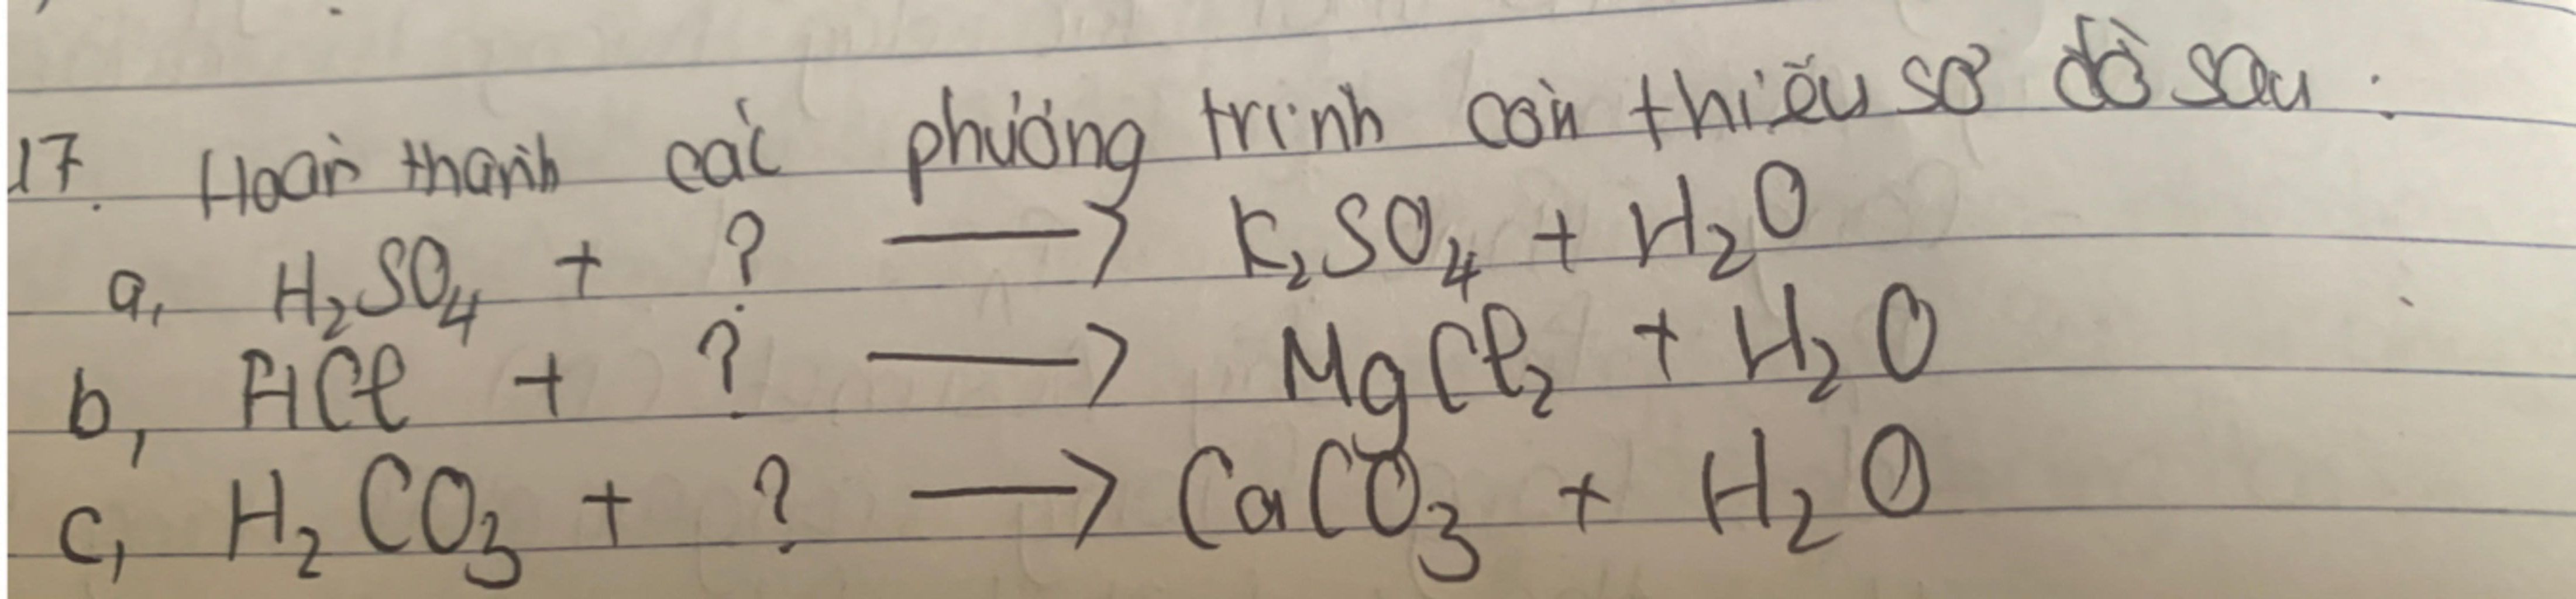 17. Hoàn thành các phương trình còn thiếu sơ đồ sau :
a, H₂SO₄ + ? ⟶ K₂SO₄ + H₂O
b, HCl + ? ⟶ MgCl₂ + H₂O
c, H₂CO₃ + ? ⟶ CaCO₃ + H₂O